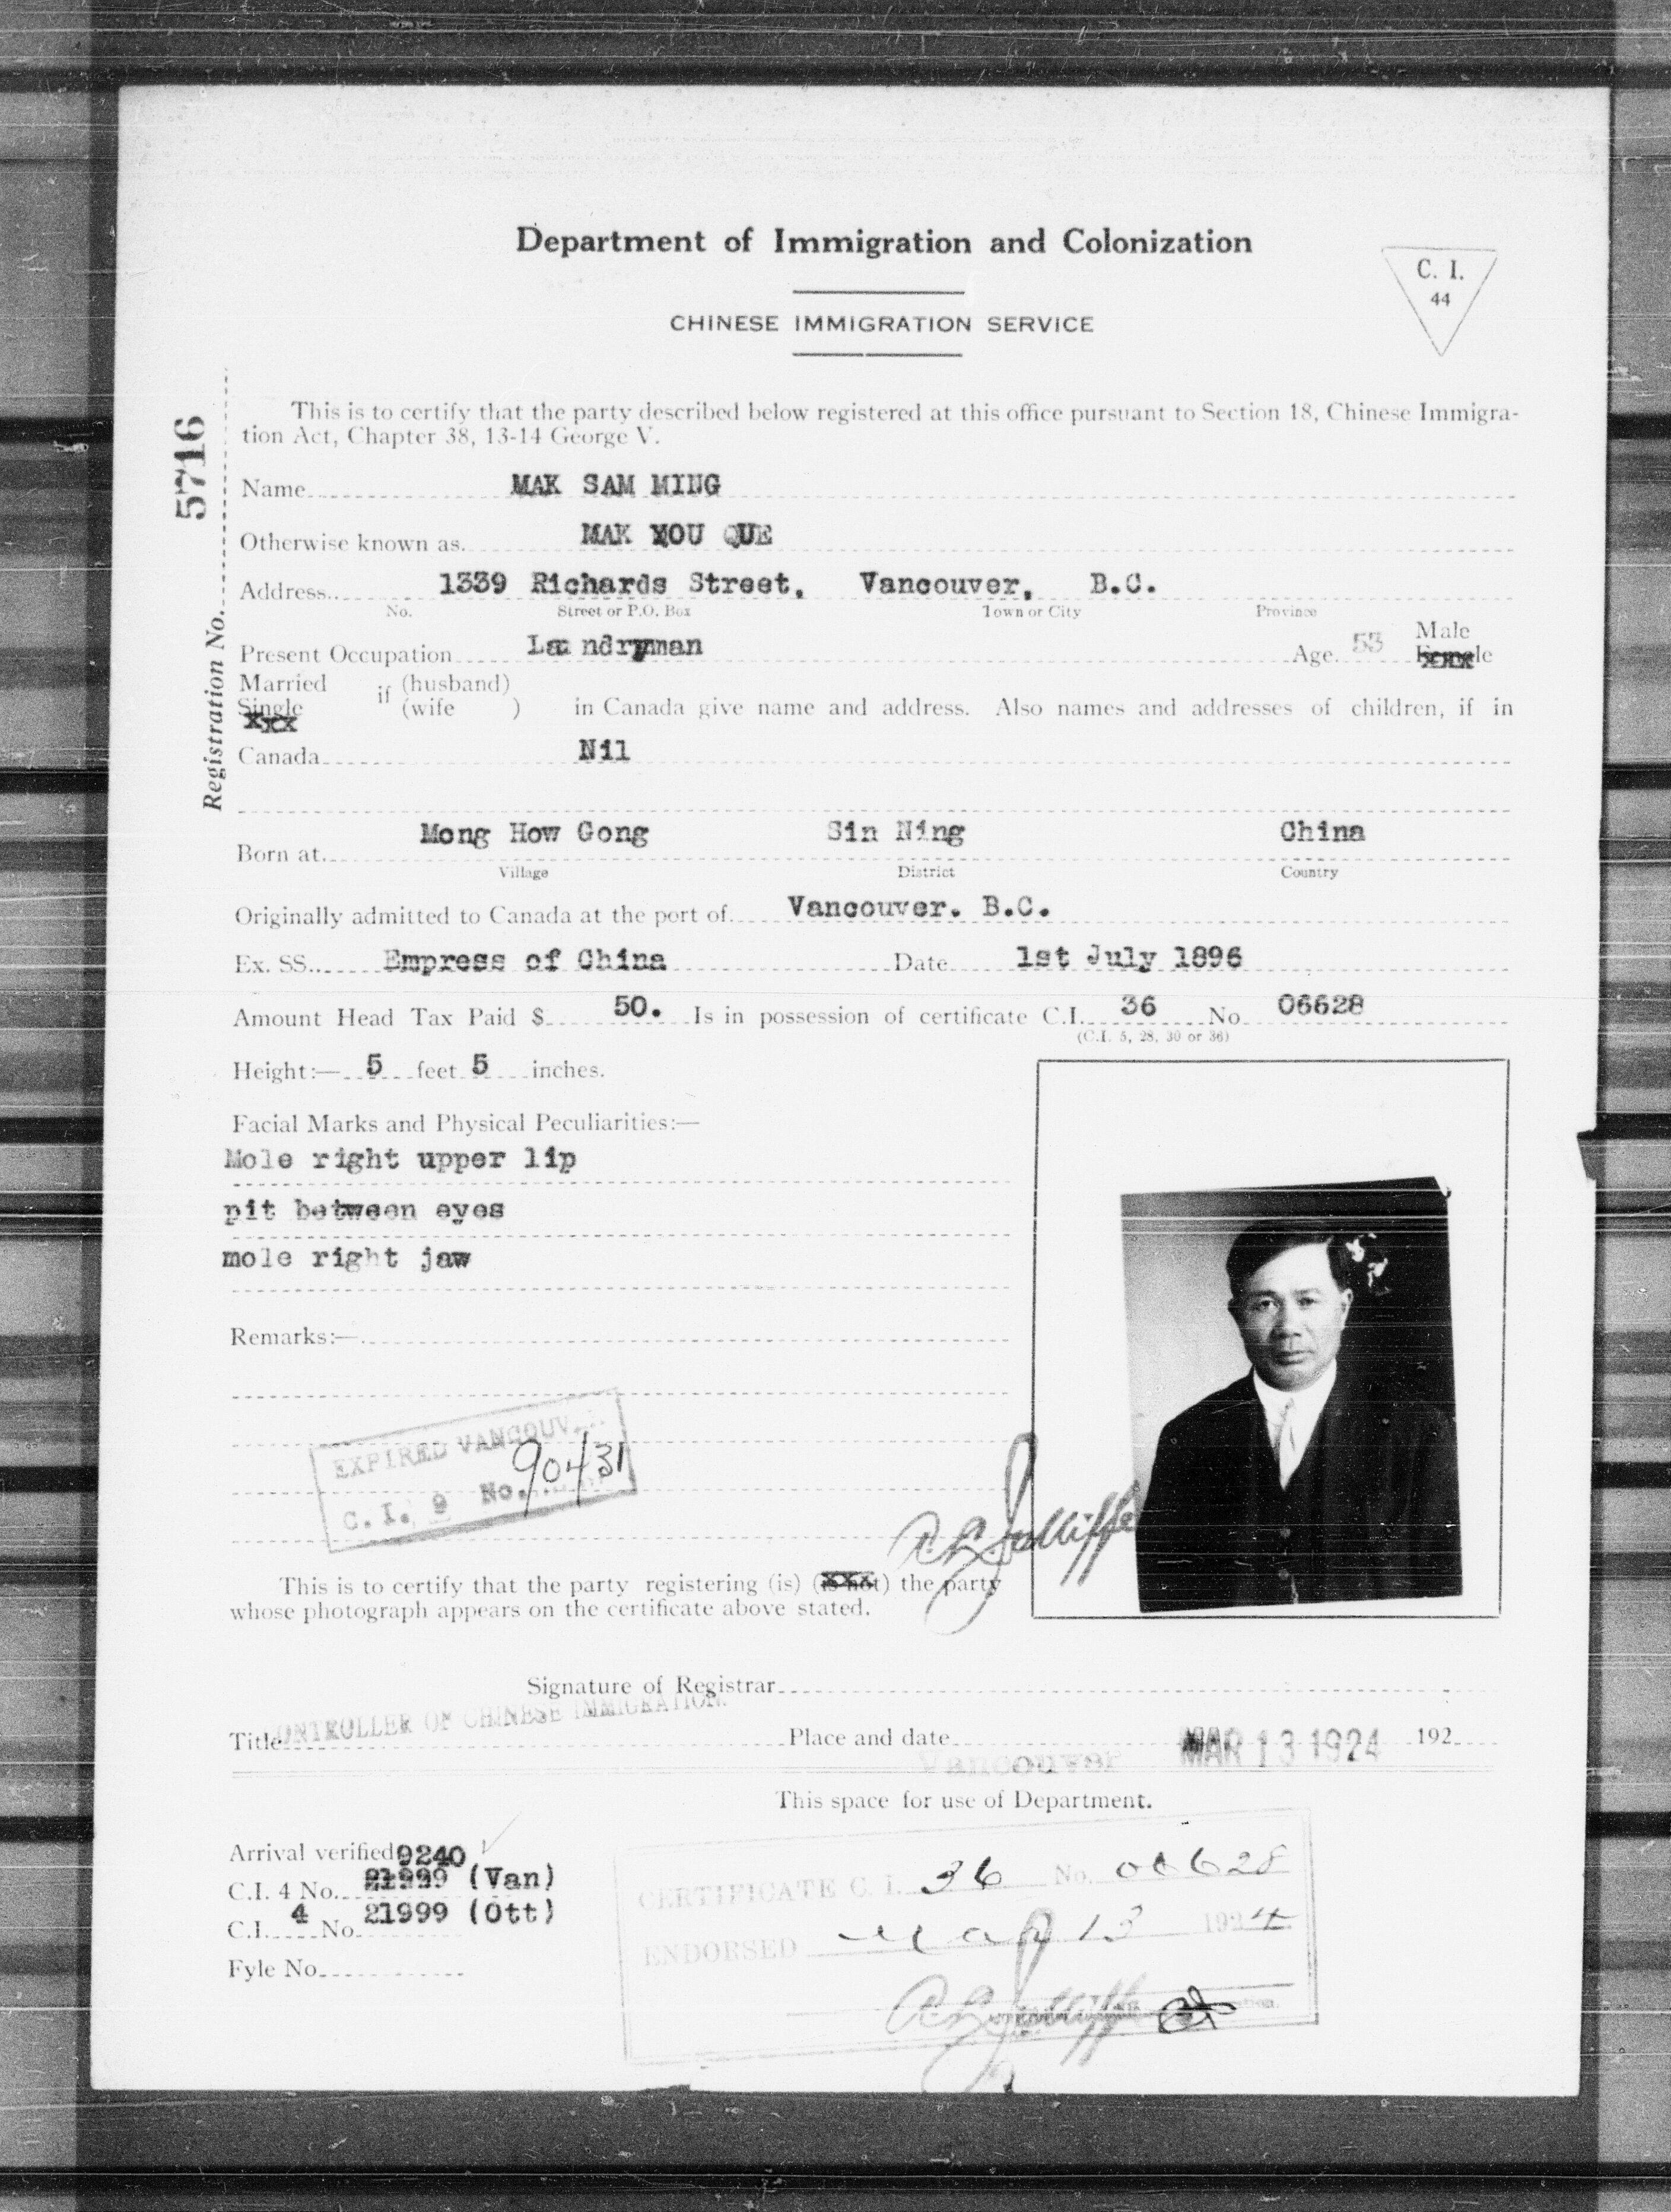 Department of Immigration and Colonization
CHINESE IMMIGRATION SERVICE
C. I.
44
Registration No. 5716
This is to certify that the party described below registered at this office pursuant to Section 18, Chinese Immigra-
tion Act, Chapter 38, 13-14 George V.
Name MAK SAM MING
Otherwise known as. MAK YOU QUE
Address 1339 Richards Street, Vancouver, B.C.
No. Street or P.O. Box Town or City Province
Present Occupation Laundryman Age 53 Male Female
Married if (husband)
Single (wife ) in Canada give name and address. Also names and addresses of children, if in
xxx
Canada Nil
Born at Mong How Gong Sin Ning China
Village District Country
Originally admitted to Canada at the port of Vancouver. B.C.
Ex. SS. Empress of China Date 1st July 1896
Amount Head Tax Paid $ 50. Is in possession of certificate C.I. 36 No 06628
(C.I. 5, 28, 30 or 36)
Height:— 5 feet 5 inches.
Facial Marks and Physical Peculiarities:—
Mole right upper lip
pit between eyes
mole right jaw
Remarks:—
EXPIRED VANCOUVER
C. I. 9 No. 90431
This is to certify that the party registering (is) (is not) the party
whose photograph appears on the certificate above stated.
Signature of Registrar
Title CONTROLLER OF CHINESE IMMIGRATION. Place and date Vancouver MAR 13 1924 192
This space for use of Department.
Arrival verified 9240
C.I. 4 No. 21999 (Van)
C.I. 4 No. 21999 (Ott)
Fyle No.
CERTIFICATE C. I. 36 No. 06628
ENDORSED Mar 13 1924